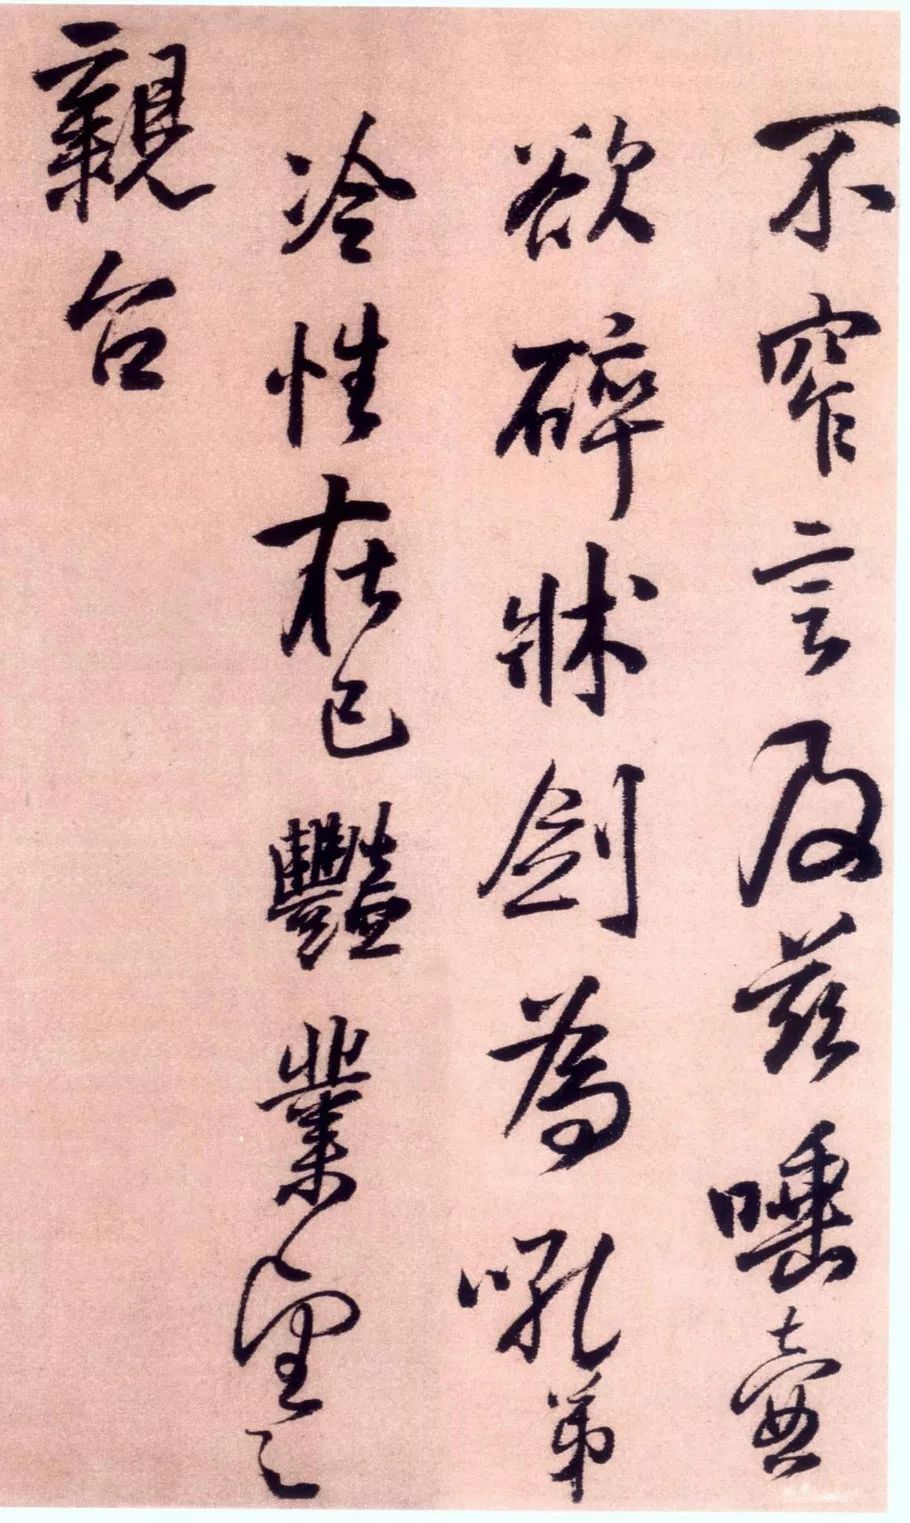 不窄言及茲唾壺
欲碎牀劍為吼弟
冷性在己豔業望之
親台